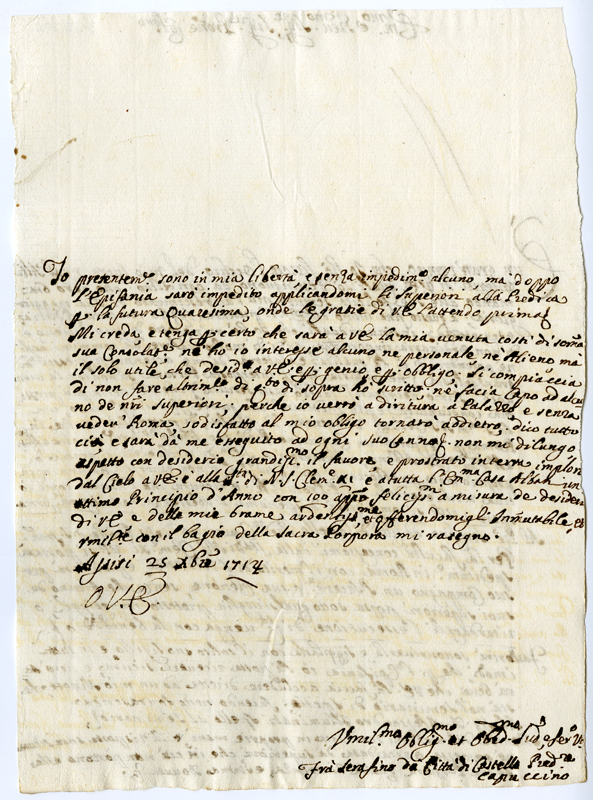 Io presentemte. sono in mia libertà e senza impedimto. alcuno, mà doppo
l'Epifania sarò impedito applicandomi li Superiori alla Predica
pr la futura Quaresima, onde le grazie di V.E. l'attendo prima.
Mi creda e tenga pr certo che sarà a V.E. la mia venuta costì di somma
sua Consolate. ne hò io interesse alcuno ne personale ne Alieno mà
il solo utile, che desido. a V.E. e pr genio e pr obbligo. Si compiaccia
di non fare altrimte. di qto. di sopra hò scritto, nè facia Capo ad alcu
no de nri superiori, perche io verrò a diritura a Palazzo e senza
veder Roma, sodisfatto al mio obligo tornarò addietro, dico tutto
ciò e sarà dà me esseguito ad ogni suo cenno. non mi dilungo
aspetto con desiderio grandismo. il favore, e prostrato in terra implor
dal Cielo a V.E. e alla Stà. di N.S. Cleme. XI e a tutta l'Emma. Casa Albani un
ottimo Principio d'Anno con 100 appo. felicismi. a misura de desideri
di V.E. e delle mie brame ardentisme. e offerendomigli Immutabile,
umilte con il bagio della Sacra Porpora mi rasegno.
Assisi 25 Xbre 1714
D V.E.
Umilmo. Obligmo. et Obed. Sud. e Serv. Vo
Frà Serafino da Città di Castello Predre
Capuccino